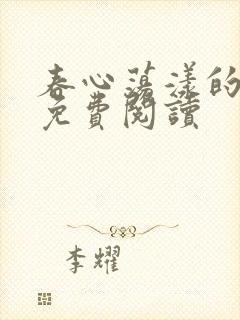 春心蕩漾的
免費閱讀
李耀